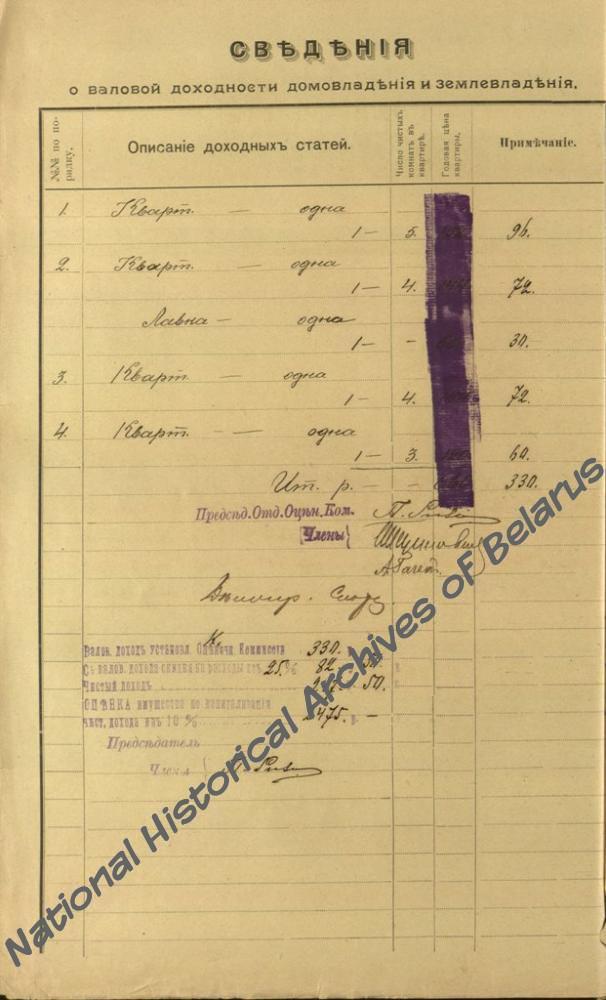 СВѢДѢНІЯ
о валовой доходности домовладѣнія и землевладѣнія.
№№ по по-
рядку.
Описаніе доходныхъ статей.
Число чистыхъ
комнатъ въ
квартирѣ.
Годовая цѣна
квартиры.
Примѣчаніе.
1. Кварт. — одна
1 — 5. 96.
2. Кварт. — одна
1 — 4. 72.
Лавка — одна
1 — - 30.
3. Кварт. — одна
1 — 4. 72.
4. Кварт. — одна
1 — 3. 60.
Ит. р. — — 330.
Предсѣд. Отд. Оцѣн. Ком.
Члены
Валов. доходъ установл. Оцѣночн. Комиссіей 330. р.
Съ валов. дохода скидки на расходы изъ 25 % 82 50
Чистый доходъ 50.
ОЦѢНКА имущества по капитализаціи
чист. дохода изъ 10 % 2475. —
Предсѣдатель
Члены
National Historical Archives of Belarus